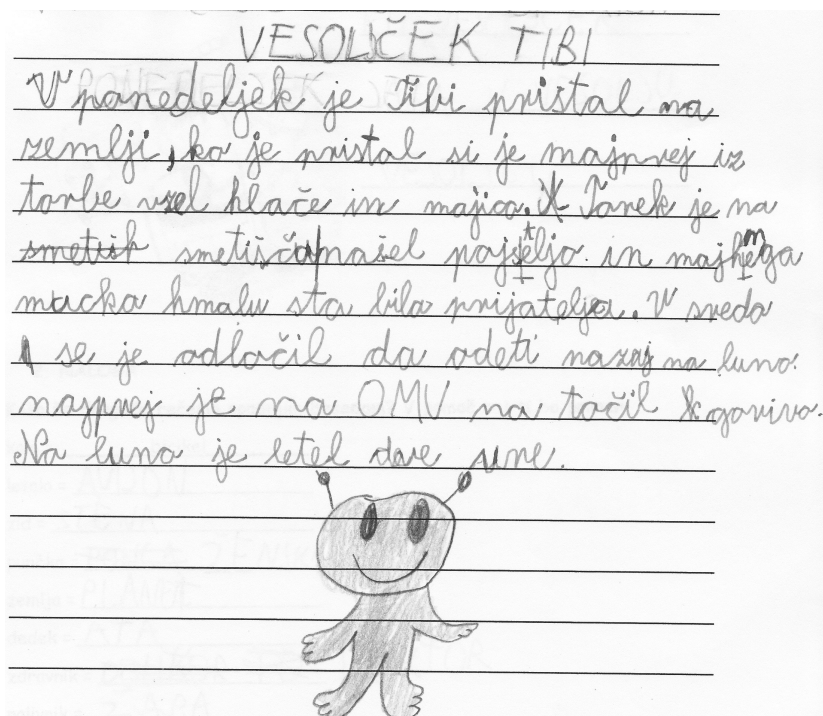 VESOLJČEK TIBI
V ponedeljek je Tibi pristal na
zemlji, ko je pristal si je najprej iz
torbe vzel hlače in majico. V Torek je na
smetišču našel pajsteljo in majhnega
mucka kmalu sta bila prijatelja. V sredo
se je odločil da odeti nazaj na luno.
najprej je na OMV na točil gorivo.
Na luno je letel dve une.